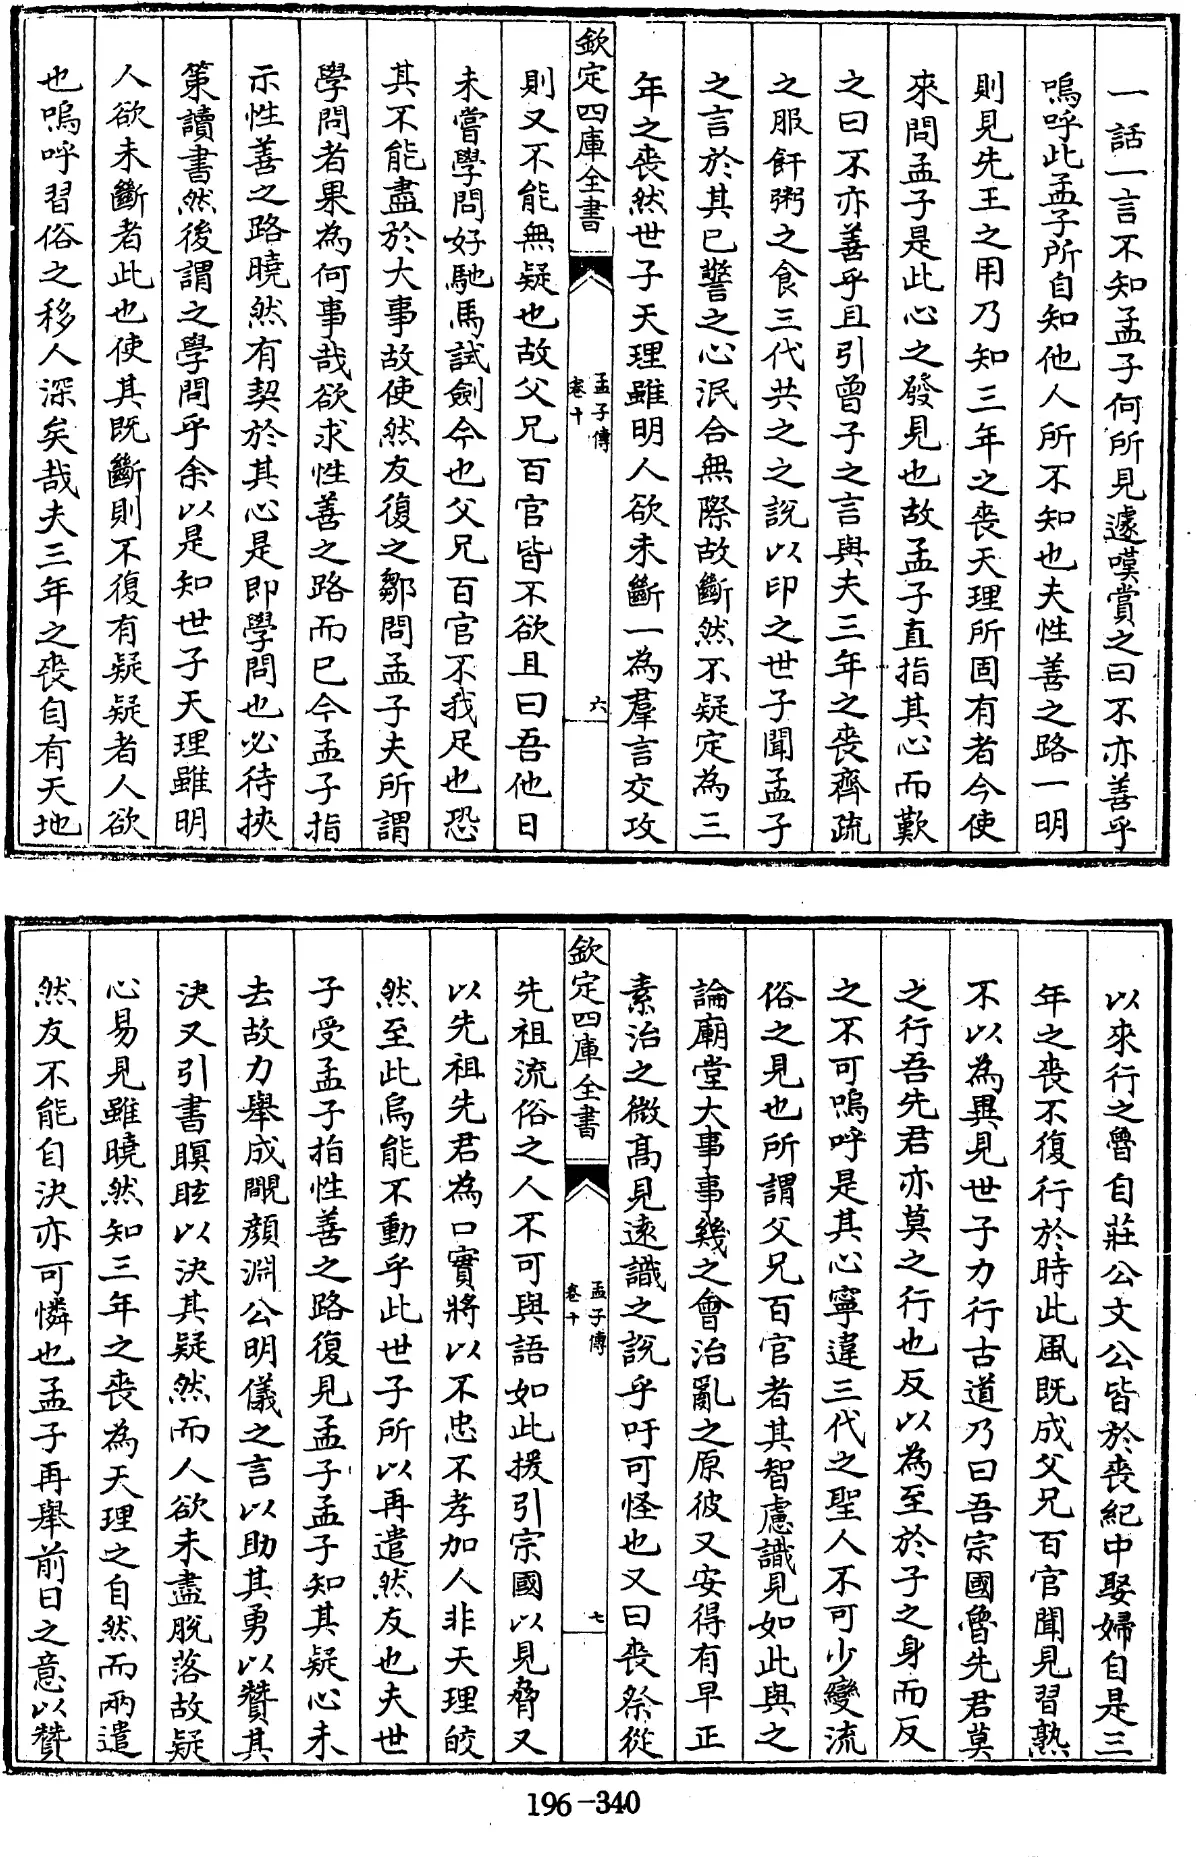 一話一言不知孟子何所見遽嘆賞之曰不亦善乎
嗚呼此孟子所自知他人所不知也夫性善之路一明
則見先王之用乃知三年之喪天理所固有者今使
來問孟子是此心之發見也故孟子直指其心而歎
之曰不亦善乎且引曾子之言與夫三年之喪齊疏
之服飦粥之食三代共之之說以印之世子聞孟子
之言於其已警之心泯合無際故斷然不疑定為三
年之喪然世子天理雖明人欲未斷一為羣言交攻
欽定四庫全書
孟子傳
卷十
六
則又不能無疑也故父兄百官皆不欲且曰吾他日
未嘗學問好馳馬試劍今也父兄百官不我足也恐
其不能盡於大事故使然友復之鄒問孟子夫所謂
學問者果為何事哉欲求性善之路而已今孟子指
示性善之路曉然有契於其心是即學問也必待挾
策讀書然後謂之學問乎余以是知世子天理雖明
人欲未斷者此也使其既斷則不復有疑疑者人欲
也嗚呼習俗之移人深矣哉夫三年之喪自有天地
以來行之魯自莊公文公皆於喪紀中娶婦自是三
年之喪不復行於時此風既成父兄百官聞見習熟
不以為異見世子力行古道乃曰吾宗國魯先君莫
之行吾先君亦莫之行也反以為至於子之身而反
之不可嗚呼是其心寧違三代之聖人不可少變流
俗之見也所謂父兄百官者其智慮識見如此與之
論廟堂大事事幾之會治亂之原彼又安得有早正
素治之微高見遠識之說乎吁可怪也又曰喪祭從
欽定四庫全書
孟子傳
卷十
七
先祖流俗之人不可與語如此援引宗國以見脅又
以先祖先君為口實將以不忠不孝加人非天理皎
然至此烏能不動乎此世子所以再遣然友也夫世
子受孟子指性善之路復見孟子孟子知其疑心未
去故力舉成覸顏淵公明儀之言以助其勇以贊其
決又引書瞑眩以決其疑然而人欲未盡脫落故疑
心易見雖曉然知三年之喪為天理之自然而兩遣
然友不能自決亦可憐也孟子再舉前日之意以贊
196-340